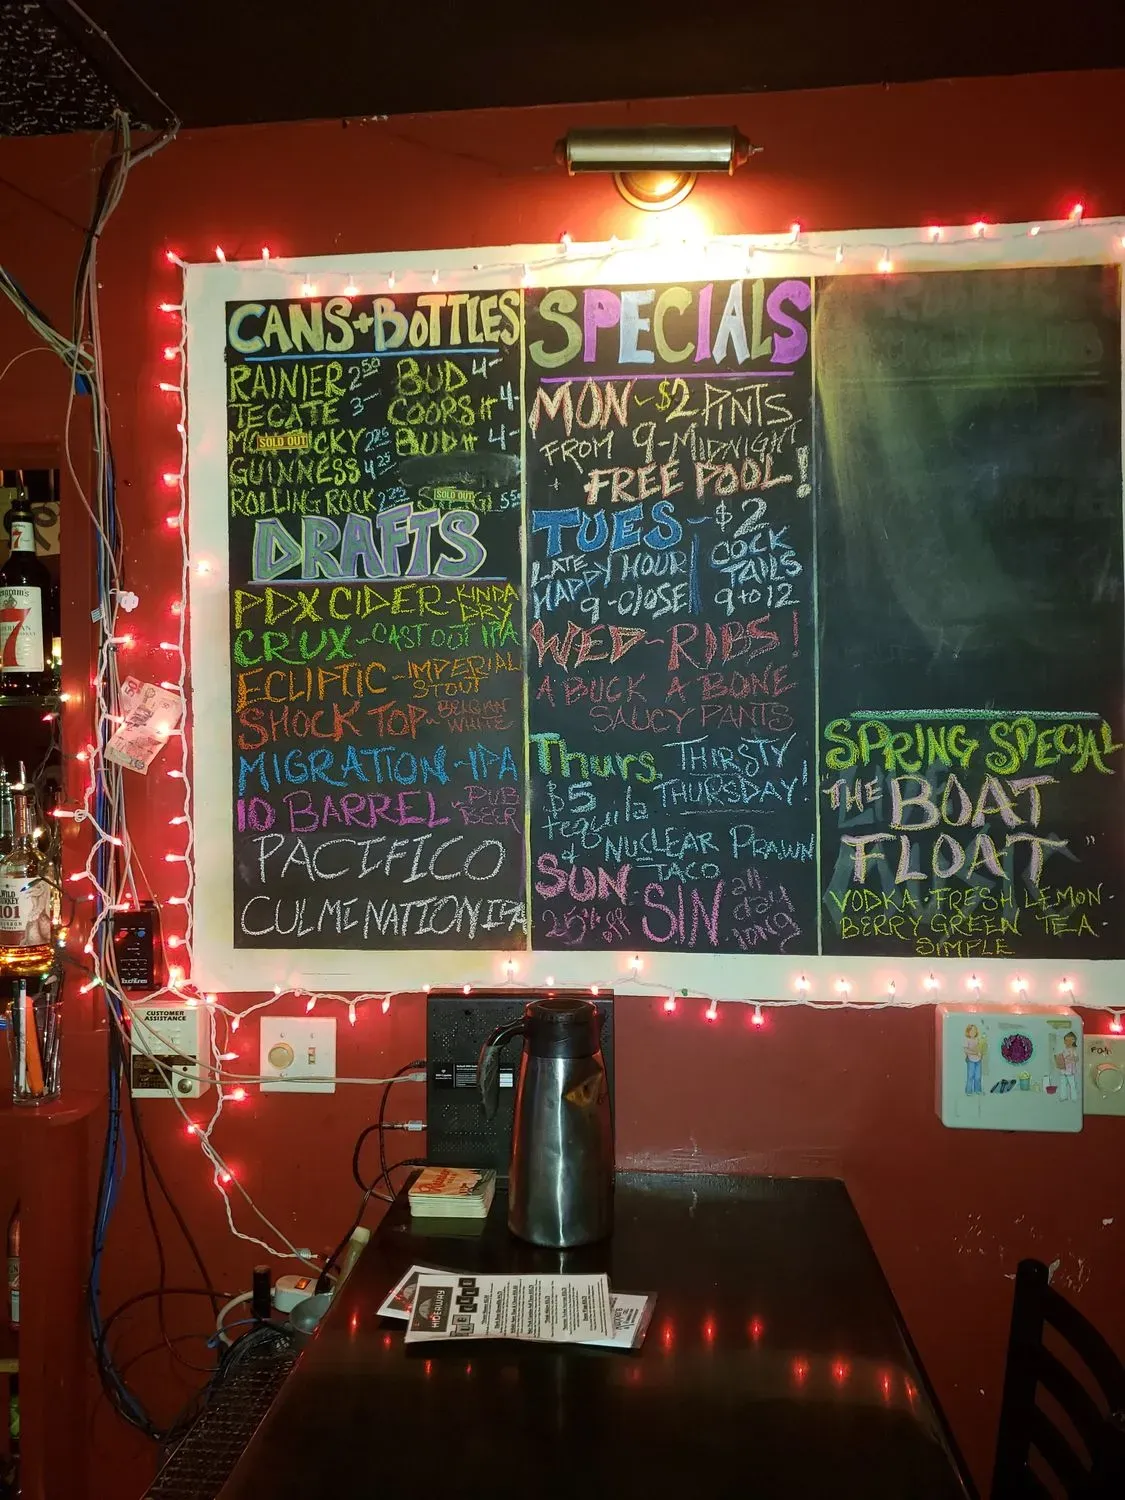 CANS + BOTTLES
RAINIER 2 50 BUD 4-
TECATE 3- COORS LT 4-
SOLD OUT CKY BUD LT 4-
GUINNESS 4 25
ROLLING ROCK SOLD OUT 5 50
DRAFTS
PDX CIDER - KINDA DRY
CRUX - CAST OUT IPA
ECLIPTIC - IMPERIAL STOUT
SHOCK TOP - BELGIAN WHITE
MIGRATION - IPA
10 BARREL - PUB BEER
PACIFICO
CULMENATION IPA
SPECIALS
MON - $2 PINTS
FROM 9-MIDNIGHT
+ FREE POOL!
TUES - $2
LATE HAPPY HOUR 9-CLOSE
COCK TAILS 9 to 12
WED - RIBS!
A BUCK A BONE
SAUCY PANTS
Thurs. THIRSTY THURSDAY!
$5 tequila
& NUCLEAR PRAWN TACO
SUN - SIN all day long
25% off
SPRING SPECIAL
"THE BOAT
FLOAT"
VODKA · FRESH LEMON ·
BERRY GREEN TEA ·
SIMPLE
7
WILD TURKEY
101
TouchTunes
CUSTOMER
ASSISTANCE
HIDEAWAY